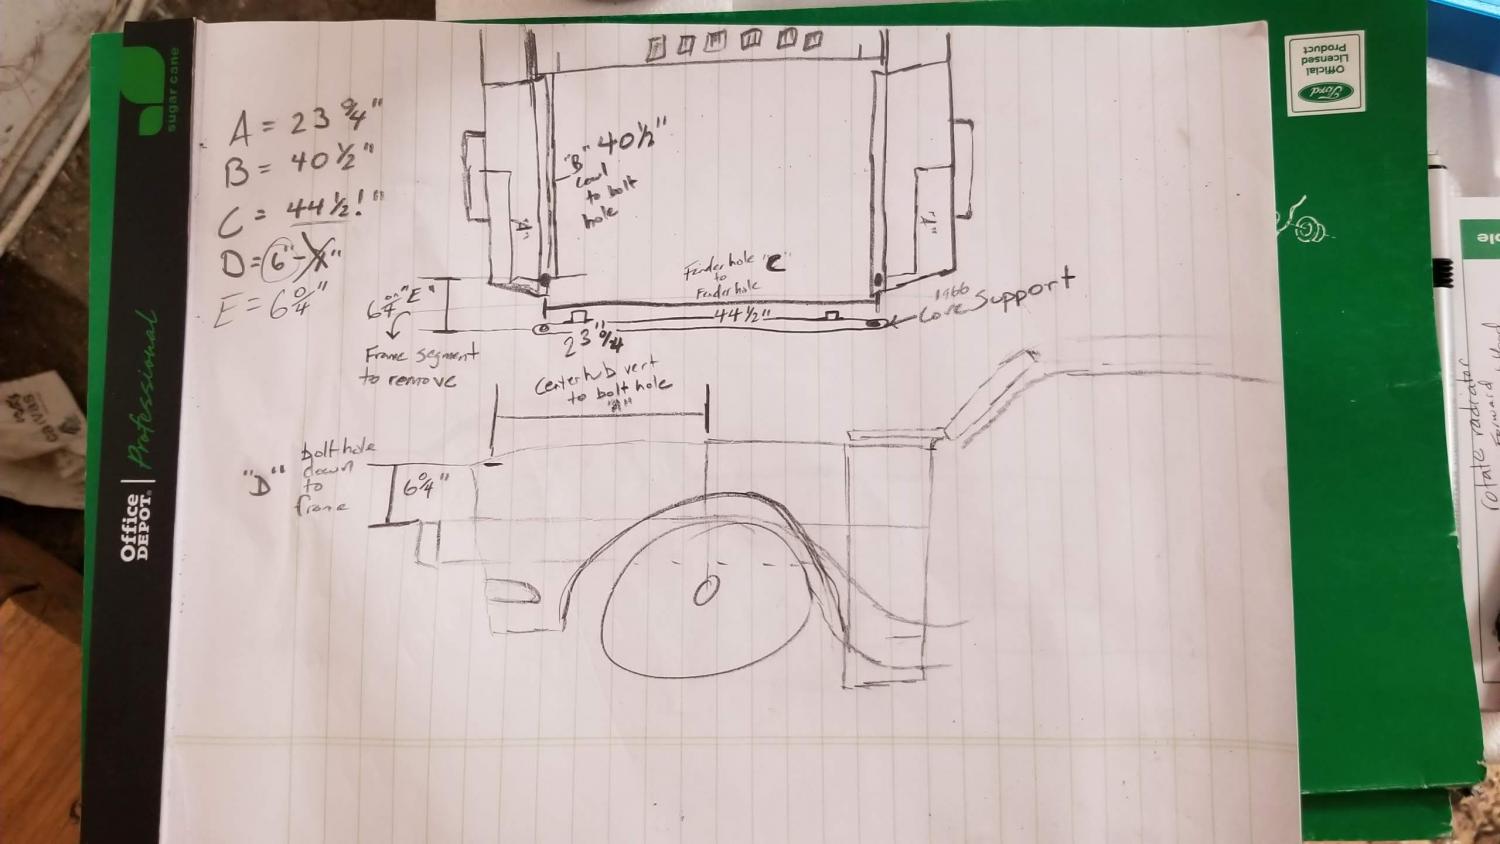 A = 23 0/4"
B = 40 1/2"
C = 44 1/2!"
D = 6"
E = 6 0/4"
"B" 40 1/2"
cowl
to bolt
hole
"A"
"A"
Fender hole "C"
to
Fender hole
44 1/2"
1966
Core Support
6 0/4" "E"
Frame segment
to remove
23 0/4"
Center hub vert
to bolt hole
"A"
"D"
bolt hole
down
to
frame
6 0/4"
sugar cane
Professional
Office
DEPOT
Ford
Official
Licensed
Product
canvas
rotate radiator
Forward